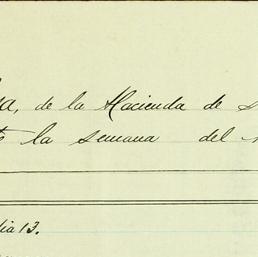 de la Hacienda de
la semana del
dia 13.